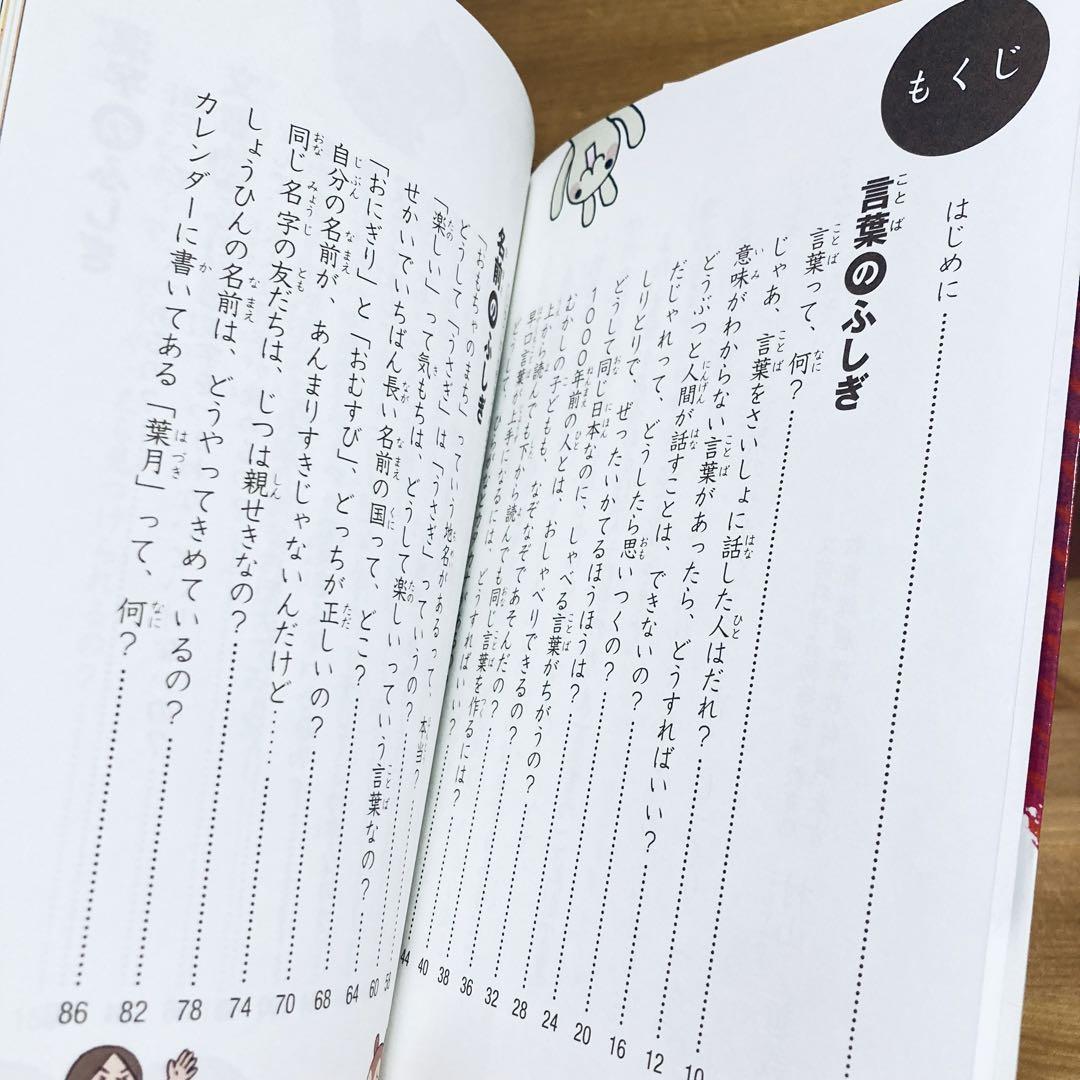 もくじ
はじめに
言葉のふしぎ
言葉って、何？ 10
じゃあ、言葉をさいしょに話した人はだれ？ 12
意味がわからない言葉があったら、どうすればいい？ 16
どうぶつと人間が話すことは、できないの？ 20
だじゃれって、どうしたら思いつくの？ 24
しりとりで、ぜったいかてるほうほうは？ 28
どうして同じ日本なのに、しゃべる言葉がちがうの？ 32
1000年前の人とは、おしゃべりできるの？ 36
むかしの子どもも、なぞなぞであそんだの？ 38
上から読んでも下から読んでも同じ言葉を作るには？ 40
早口言葉が上手になるには、どうすればいい？ 44
どうして、
名前のふしぎ
「おもちゃのまち」っていう地名があるって、本当？
どうして「うさぎ」は「うさぎ」っていうの？ 58
「楽しい」って気もちは、どうして楽しいっていう言葉なの？ 60
せかいでいちばん長い名前の国って、どこ？ 64
「おにぎり」と「おむすび」、どっちが正しいの？ 68
自分の名前が、あんまりすきじゃないんだけど…… 70
同じ名字の友だちは、じつは親せきなの？ 74
しょうひんの名前は、どうやってきめているの？ 78
カレンダーに書いてある「葉月」って、何？ 82
86